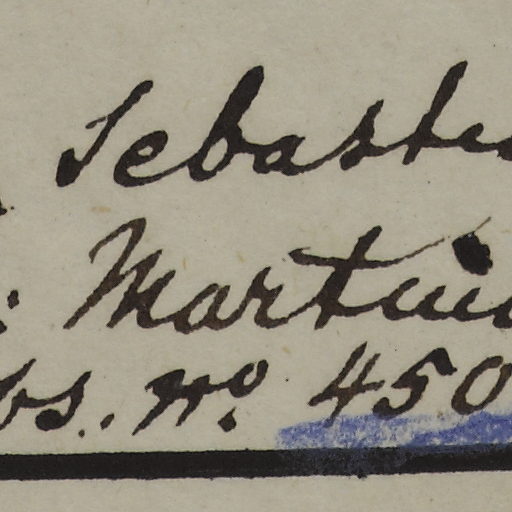 Sebastia
: Martin
bs. No. 450